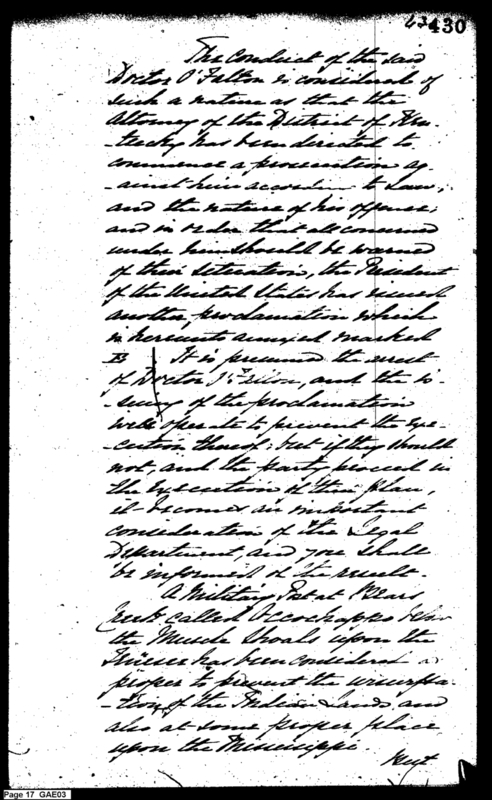 430
The Conduct of the said
Doctor O'Fallon is considered of
such a nature as that the
Attorney of the District of Ken-
-tucky has been directed to
commence a prosecution ag-
-ainst him according to Law,
and the nature of his offence;
and in order that all concerned
under him should be warned
of their situation, the President
of the United States has issued
another proclamation which
is hereunto annexed marked
B It is presumed the arrest
of Doctor and the is-
-suing of the proclamation
will operate to prevent the exe-
-cution thereof; but if they should
not, and the party proceed in
the execution of their plan,
it becomes an important
consideration of the Legal
Department, and you shall
be informed of the result.
A Military Post at Bears
Creek called Occochappo below
the Muscle Shoals upon the
has been considered as
proper to prevent the usurpa-
-tion of the Indian Lands and
also at some proper place
upon the Mississippi.
Next
Page 17 GAE03